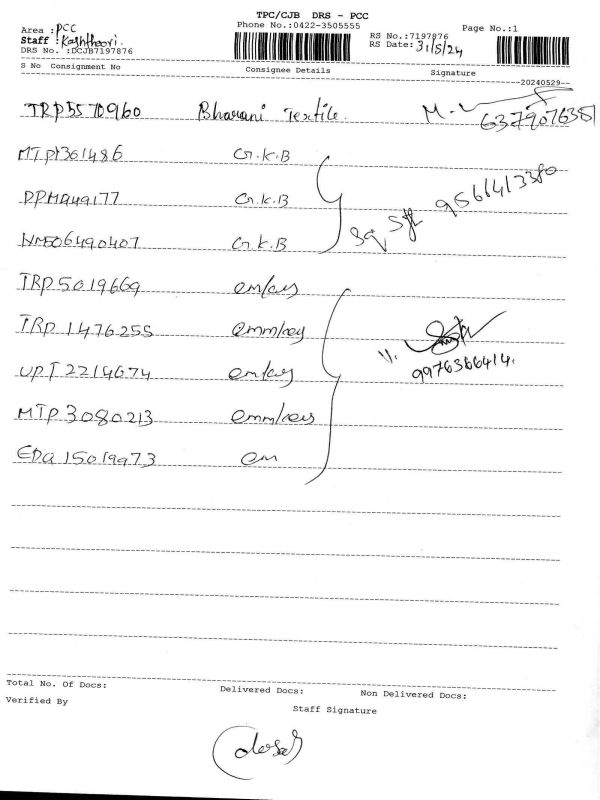 TPC/CJB DRS - PCC
Area : PCC
Phone No.:0422-3505555
Page No.:1
Staff : Kashthoori.
RS No.:7197876
DRS No. :DCJB7197876
RS Date: 31/5/24
S No Consignment No Consignee Details Signature
20240529
TRP5570960 Bharani Textile. 6379076381
MTP1361486 G.K.B
PPMA49177 G.K.B 9566413380
NME06490407 G.K.B
TRP5019669
TRP1476255
UPT2214674 9976366414.
MTP3080213
EDA15019973 em
Total No. Of Docs: Delivered Docs: Non Delivered Docs:
Verified By Staff Signature